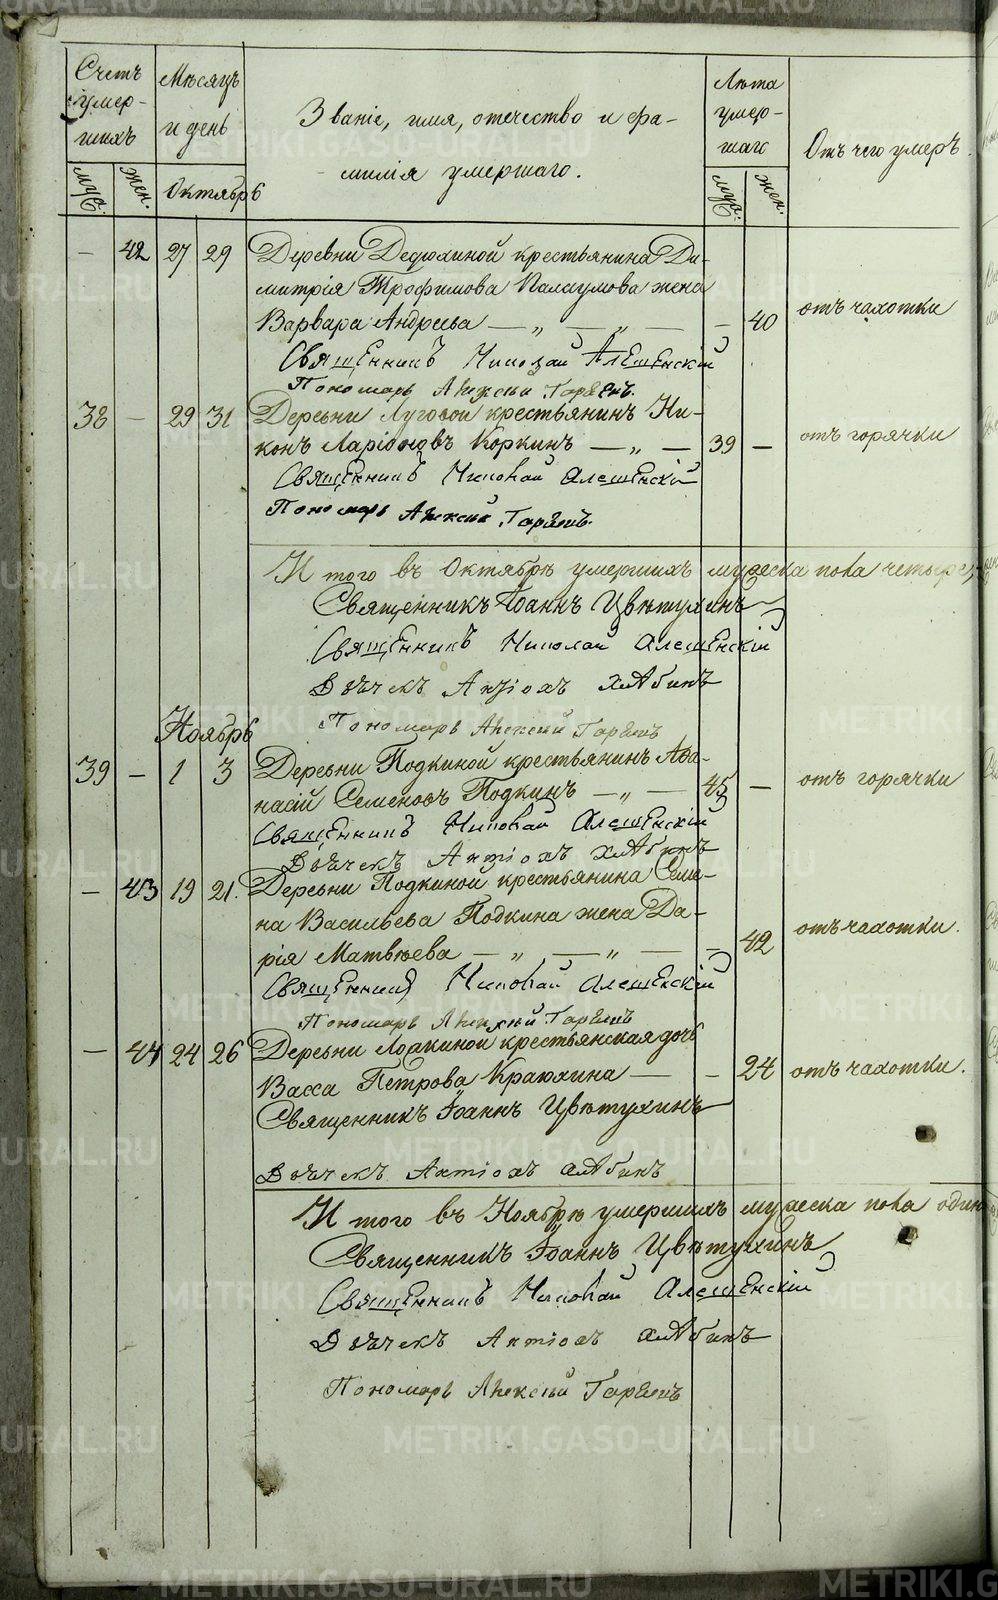 Счетъ умер-
шихъ
Мѣсяцъ
и день
Званіе, имя, отечество и фа-
милія умершаго.
Лѣта
умер-
шаго
Отъ чего умеръ.
муж. жен. Октябрь муж. жен.
— 42 27 29 Деревни Дедюхиной крестьянина Ди-
митрія Трофимова Палаумова жена
Варвара Андреева — „ — „ — — 40 отъ чахотки
Священникъ Николай Алешенскій
Пономарь Алексѣй
38 — 29 31 Деревни Луговой крестьянинъ Ни-
конъ Ларіоновъ Коркинъ — „ — 39 — отъ горячки
Священникъ Николай Алешенскій
Пономарь Алексѣй
И того въ Октябрѣ умершихъ мужеска пола четыре,
Священникъ Іоаннъ Цвѣтухинъ
Священникъ Николай Алешенскій
Дьячекъ Антіохъ Хлябинъ
Пономарь Алексѣй
Ноябрь
39 — 1 3 Деревни Подкиной крестьянинъ Аѳа-
насій Семеновъ Подкинъ — „ — 45 — отъ горячки
Священникъ Николай Алешенскій
Дьячекъ Антіохъ Хлябинъ
— 43 19 21. Деревни Подкиной крестьянина Семе-
на Васильева Подкина жена Да-
рія Матвѣева — „ — „ — — 42 отъ чахотки.
Священникъ Николай Алешенскій
Пономарь Алексѣй
— 44 24 26 Деревни крестьянская дочь
Васса Петрова Краюхина — — 24 отъ чахотки.
Священникъ Іоаннъ Цвѣтухинъ
Дьячекъ Антіохъ Хлябинъ
И того въ Ноябрѣ умершихъ мужеска пола одинъ
Священникъ Іоаннъ Цвѣтухинъ
Священникъ Николай Алешенскій
Дьячекъ Антіохъ Хлябинъ
Пономарь Алексѣй
METRIKI.GASO-URAL.RU